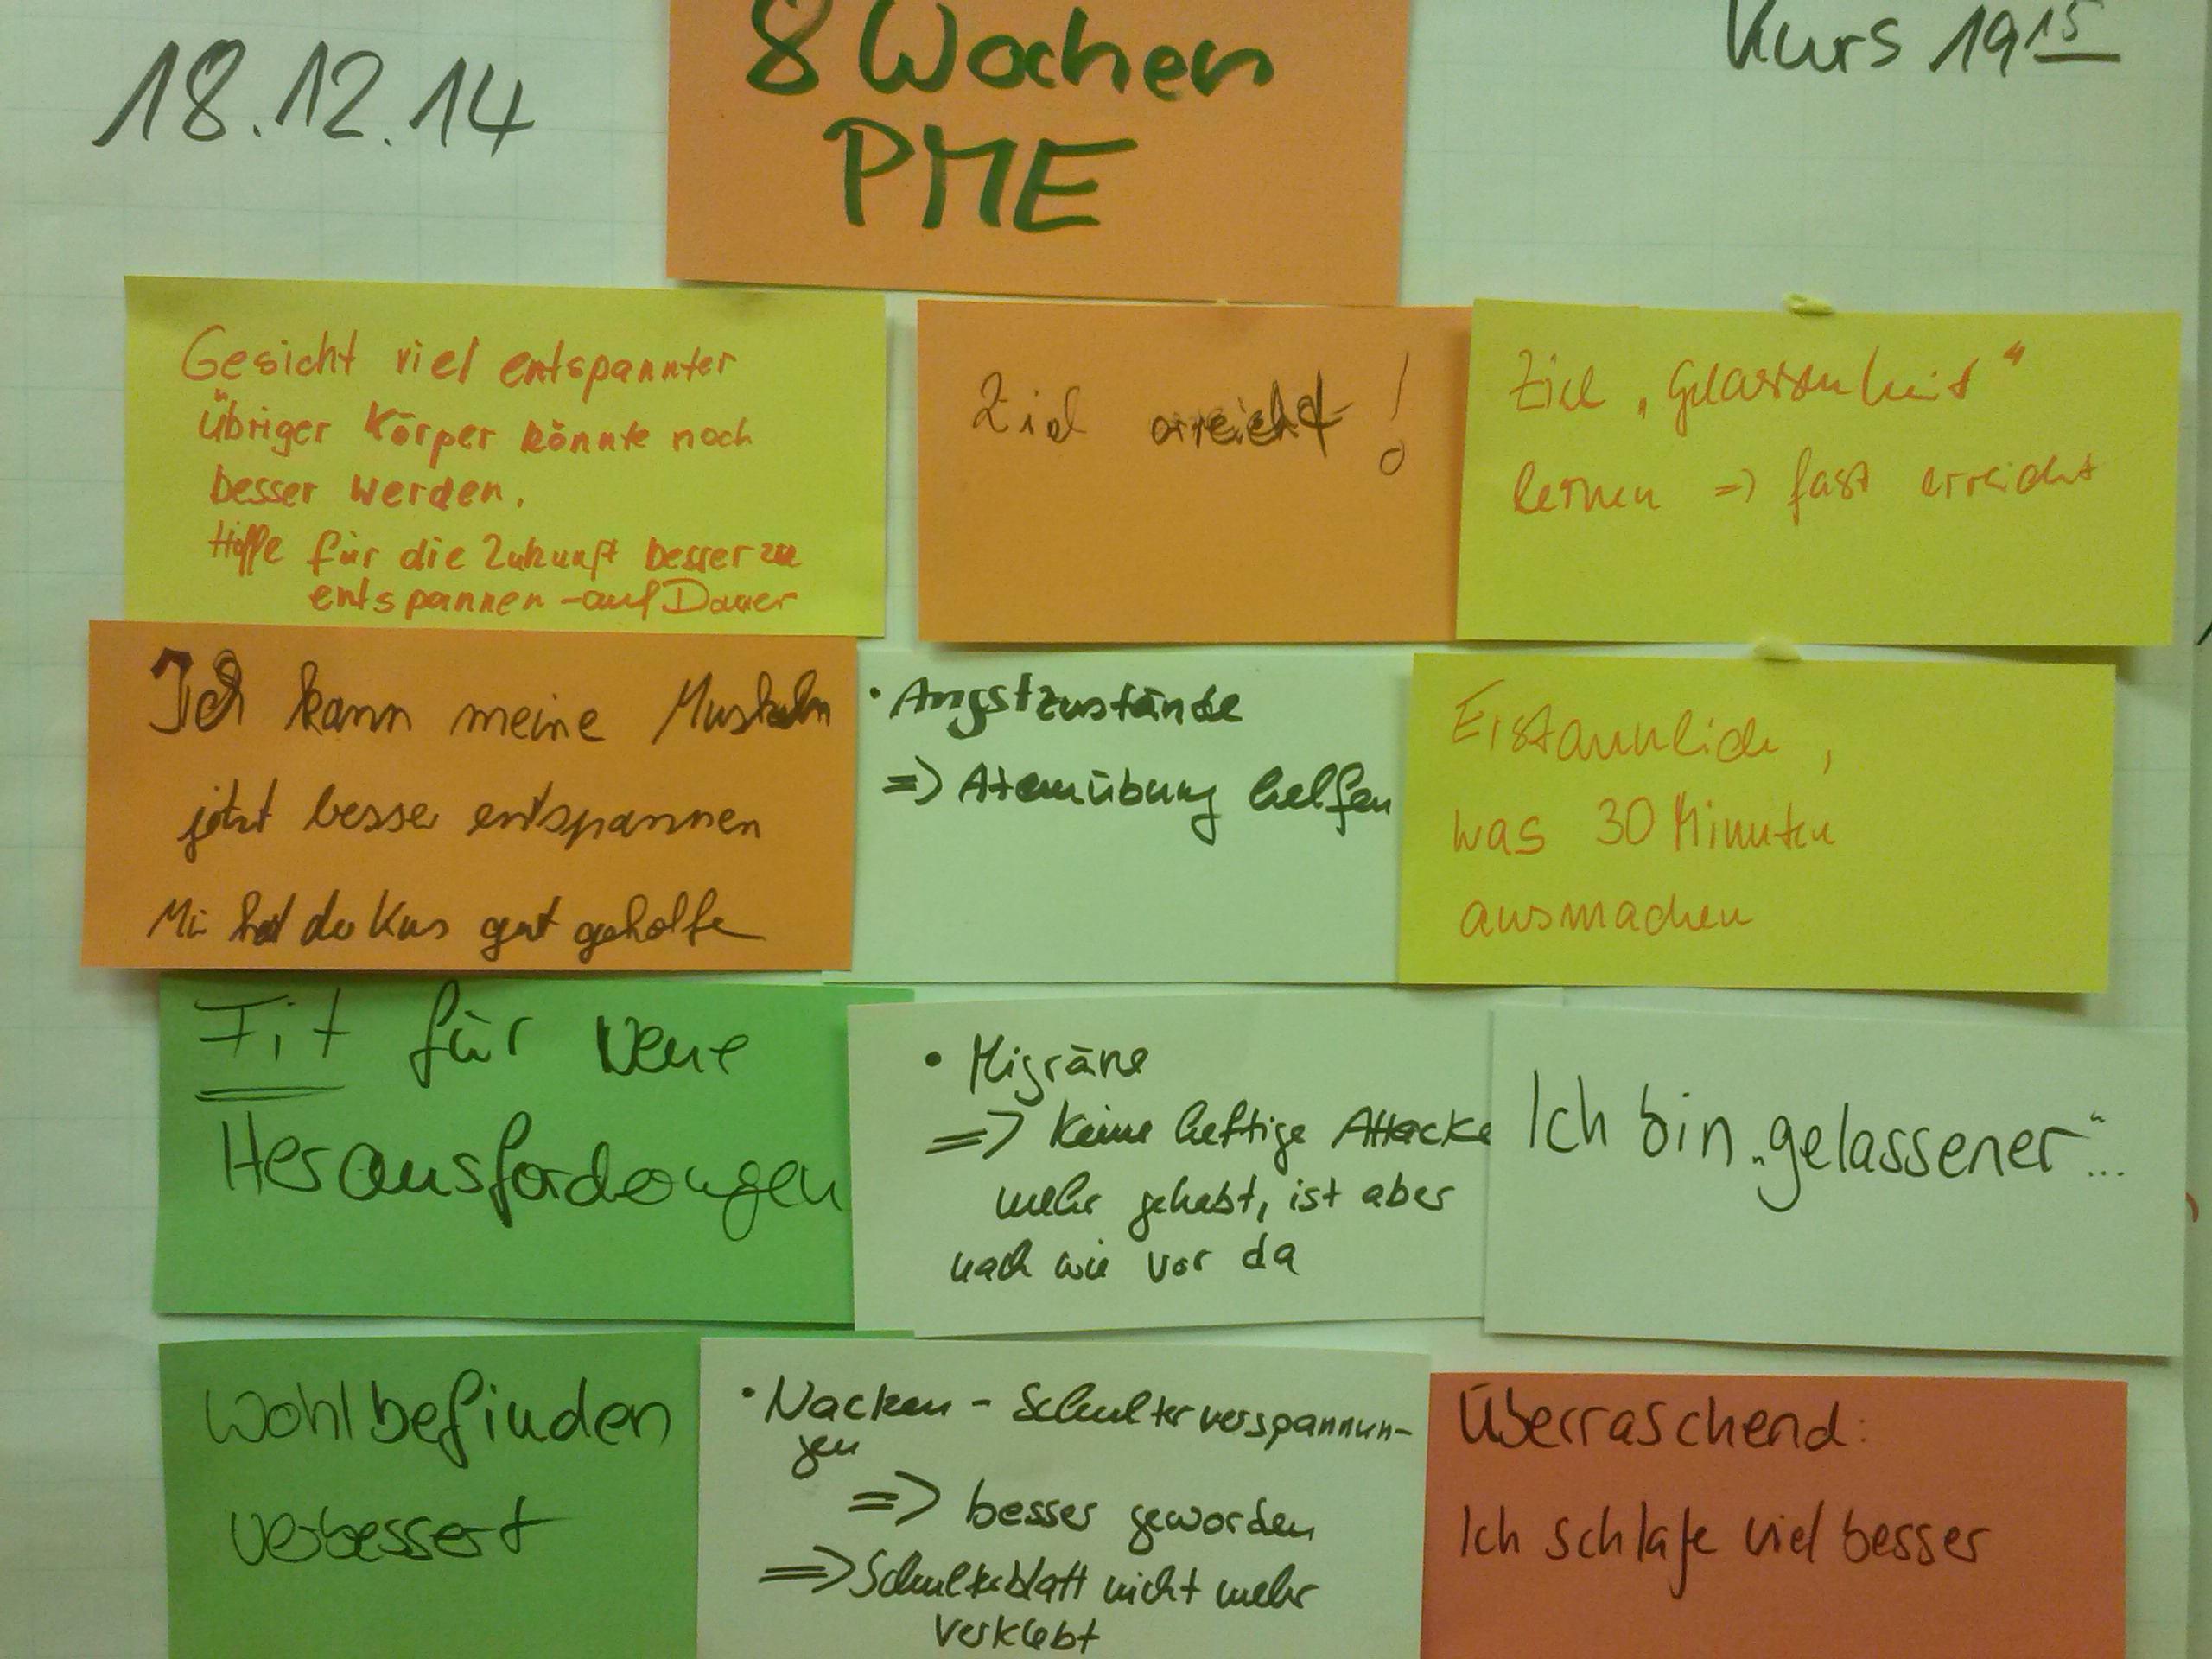 18.12.14
8 Wochen
PME
Kurs 19 15
Gesicht viel entspannter
Übriger Körper könnte noch
besser werden.
Hoffe für die Zukunft besser zu
entspannen - auf Dauer
Ziel erreicht!
Ziel „Gelassenheit“
lernen => fast erreicht
Ich kann meine Muskeln
jetzt besser entspannen
Mir hat der Kurs gut geholfe
• Angstzustände
=> Atemübung helfen
Erstaunlich,
was 30 Minuten
ausmachen
Fit für Neue
Herausforderungen
• Migräne
=> keine heftige Attacke
mehr gehabt, ist aber
nach wie vor da
Ich bin „gelassener“...
Wohlbefinden
verbessert
• Nacken - Schulterverspannun-
gen
=> besser geworden
=> Schulterblatt nicht mehr
verklebt
Überraschend:
Ich schlafe viel besser